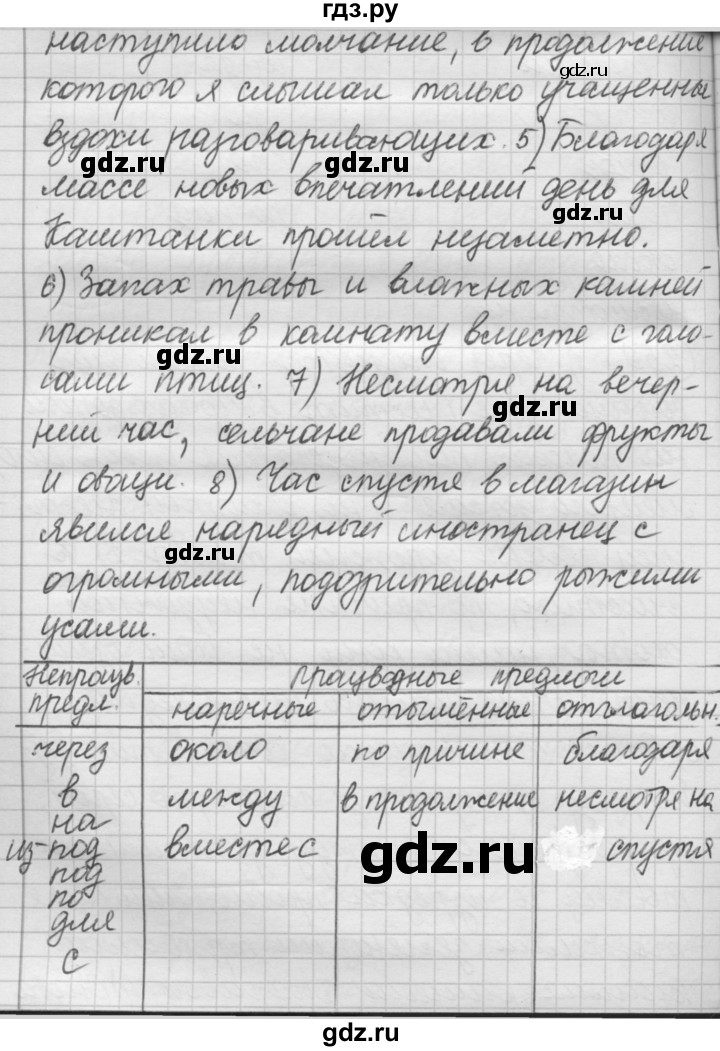 гдз.ру
наступило молчание, в продолжение
которого я слышал только учащенны
вздохи разговаривающих. 5) Благодаря
массе новых впечатлений день для
Каштанки прошёл незаметно.
6) Запах травы и влажных камней
проникал в комнату вместе с голо-
сами птиц. 7) Несмотря на вечер-
ний час, сельчане продавали фрукты
и овощи. 8) Час спустя в магазин
явился нарядный иностранец с
огромными, подозрительно рыжими
усами.
Непроизв. предл. производные предлоги
наречные отымённые отглагольн.
через около по причине благодаря
в между в продолжение несмотря на
на
из-под вместе с спустя
под
по
для
с
gdz.ru
gdz.ru
gdz.ru
gdz.ru
gdz.ru
gdz.ru
gdz.ru
gdz.ru
gdz.ru
gdz.ru